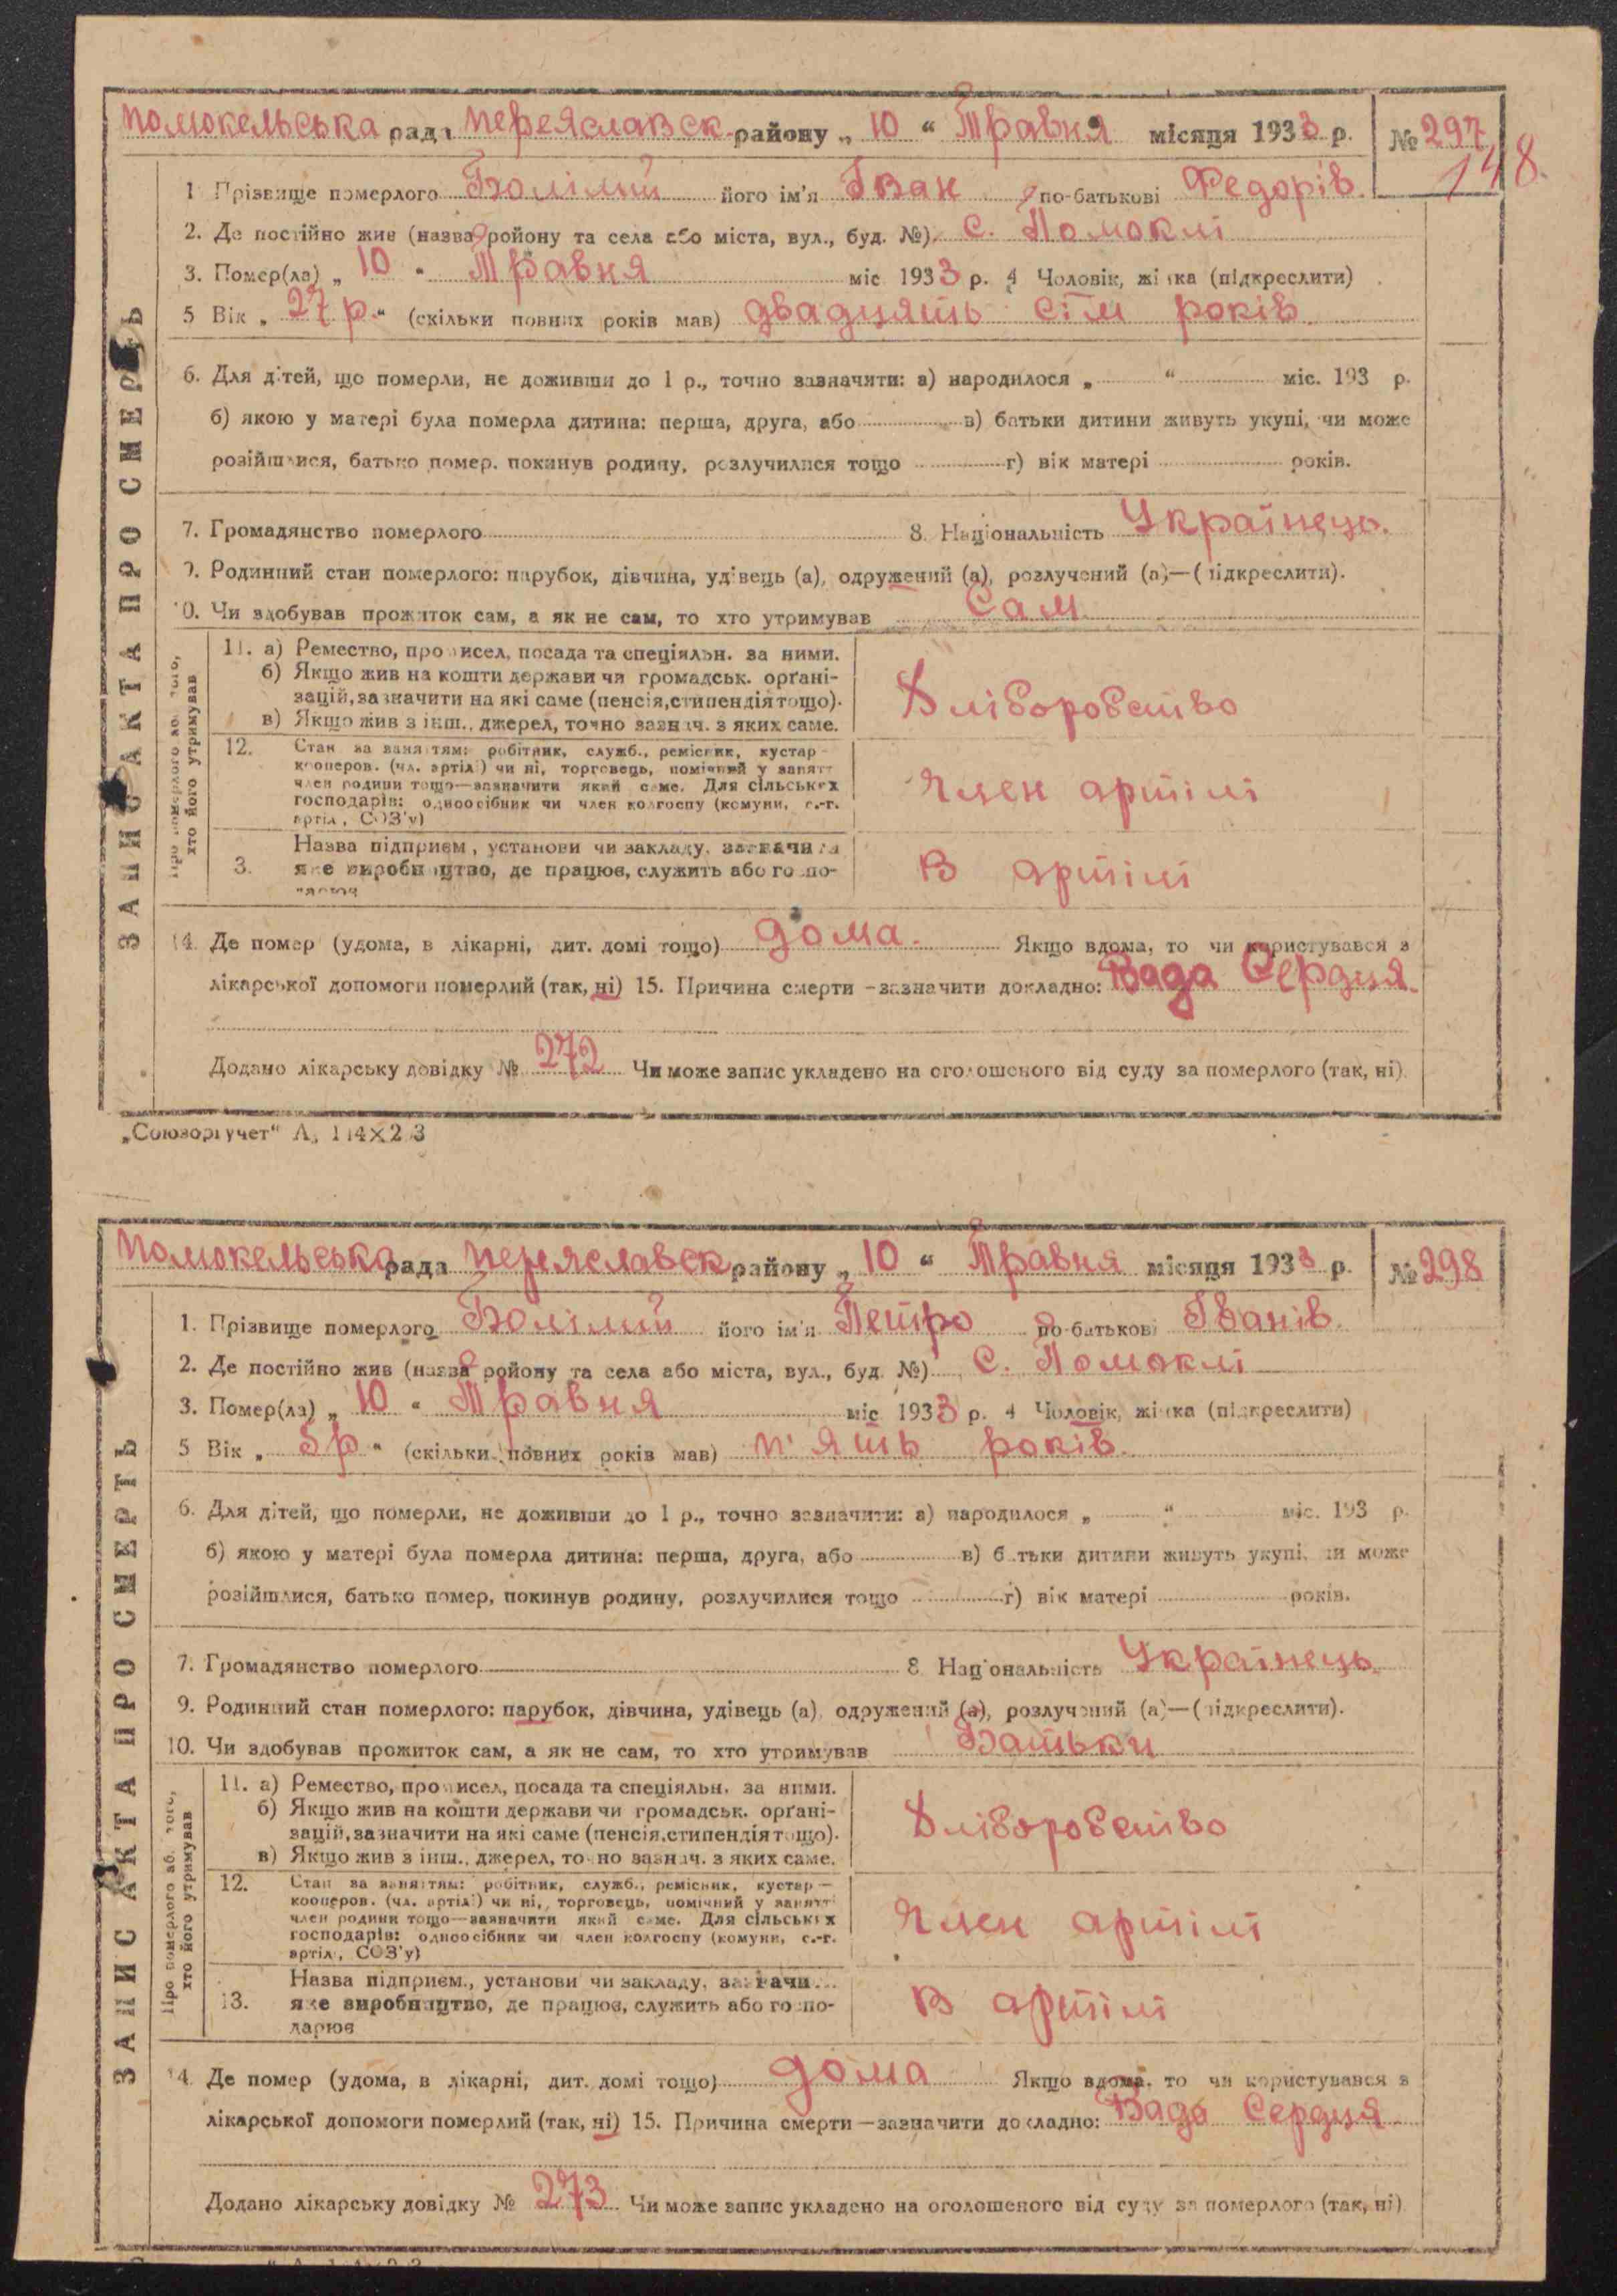 помокельська рада переяславск району „ 10 “ Травня місяця 1933 р. № 297
148.
1 Прізвище померлого Болілий його ім'я Іван по-батькові Федорів.
2. Де постійно жив (назва ройону та села або міста, вул., буд. №) с. Помоклі
3. Помер(ла) „ 10 “ Травня міс 1933 р. 4 Чоловік, жінка (підкреслити)
5 Вік „ 27 р. “ (скільки повних років мав) двадцять сім років
6. Для дітей, що померли, не доживши до 1 р., точно зазначити: а) народилося „ “ міс. 193 р.
б) якою у матері була померла дитина: перша, друга, або в) батьки дитини живуть укупі, чи може
розійшлися, батько помер, покинув родину, розлучилися тощо г) вік матері років.
7. Громадянство померлого 8. Національність Українець.
9. Родинний стан померлого: парубок, дівчина, удівець (а), одружений (а), розлучений (а)—(підкреслити).
10. Чи здобував прожиток сам, а як не сам, то хто утримував Сам
11. а) Ремество, промисел, посада та спеціяльн. за ними.
б) Якщо жив на кошти держави чи громадськ. орґані-
зацій, зазначити на які саме (пенсія, стипендія тощо).
в) Якщо жив з інш., джерел, точно зазнач. з яких саме.
Хліборобство
12. Стан за заняттям: робітник, служб., ремісник, кустар —
кооперов. (чл. артілі) чи ні, торговець, помічний у занятті
член родини тощо—зазначити який саме. Для сільських
господарів: одноосібник чи член колгоспу (комуни, с.-г.
артіл., СОЗ'у)
Член артілі
Назва підприєм., установи чи закладу, зазначити
3. яке виробництво, де працює, служить або госпо-
В артілі
14. Де помер (удома, в лікарні, дит. домі тощо) дома. Якщо вдома, то чи користувався з
лікарської допомоги померлий (так, ні) 15. Причина смерти —зазначити докладно: Вада Серця.
Додано лікарську довідку № 272 Чи може запис укладено на оголошеного від суду за померлого (так, ні).
ЗАПИС АКТА ПРО СМЕРТЬ
Про померлого або того,
хто його утримував
„Союзоргучет“
помокельська рада переяславск району „ 10 “ Травня місяця 1933 р. № 298
1. Прізвище померлого Болілий його ім'я Петро по-батькові Іванів.
2. Де постійно жив (назва ройону та села або міста, вул., буд. №) с. Помоклі
3. Помер(ла) „ 10 “ Травня міс 1933 р. 4 Чоловік, жінка (підкреслити)
5 Вік „ 5р “ (скільки повних років мав) п'ять років.
6. Для дітей, що померли, не доживши до 1 р., точно зазначити: а) народилося „ “ міс. 193 р.
б) якою у матері була померла дитина: перша, друга, або в) батьки дитини живуть укупі, чи може
розійшлися, батько помер, покинув родину, розлучилися тощо г) вік матері років.
7. Громадянство померлого 8 Національність Українець.
9. Родинний стан померлого: парубок, дівчина, удівець (а), одружений (а), розлучений (а)—(підкреслити).
10. Чи здобував прожиток сам, а як не сам, то хто утримував Батьки
11. а) Ремество, промисел, посада та спеціяльн. за ними.
б) Якщо жив на кошти держави чи громадськ. орґані-
зацій, зазначити на які саме (пенсія, стипендія тощо).
в) Якщо жив з інш., джерел, точно зазнач. з яких саме.
Хліборобство
12. Стан за заняттям: робітник, служб., ремісник, кустар —
кооперов. (чл. артілі) чи ні, торговець, помічний у занятті
член родини тощо—зазначити який саме. Для сільських
господарів: одноосібник чи член колгоспу (комуни, с.-г.
артіл., СОЗ'у)
Член артілі
Назва підприєм., установи чи закладу, зазначити
13. яке виробництво, де працює, служить або госпо-
дарює
В артілі
14. Де помер (удома, в лікарні, дит. домі тощо) дома Якщо вдома, то чи користувався з
лікарської допомоги померлий (так, ні) 15. Причина смерти —зазначити докладно: Вада Серця.
Додано лікарську довідку № 273 Чи може запис укладено на оголошеного від суду за померлого (так, ні)
ЗАПИС АКТА ПРО СМЕРТЬ
Про померлого або того,
хто його утримував